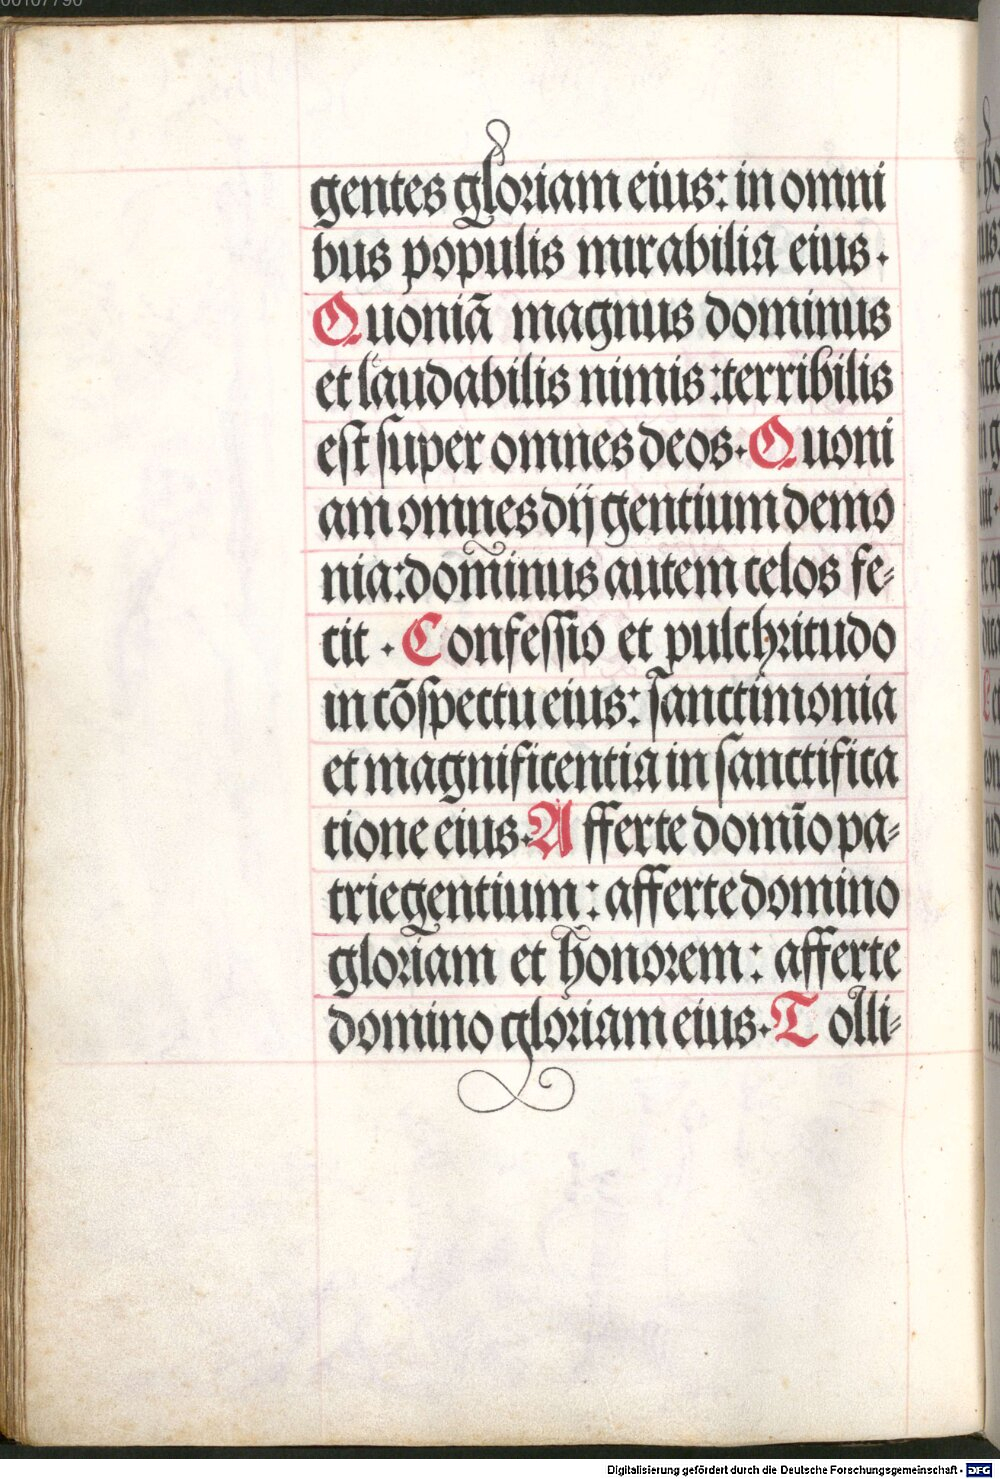 00107790
gentes gloriam eius: in omni
bus populis mirabilia eius.
Quoniã magnus dominus
et laudabilis nimis: terribilis
est super omnes deos. Quoni
am omnes dij gentium demo
nia: dominus autem celos fe-
cit. Confessio et pulchritudo
in cõspectu eius: sanctimonia
et magnificentia in sanctifica
tione eius. Afferte domĩo pa-
trie gentium: afferte domino
gloriam et honorem: afferte
domino gloriam eius. Tolli-
Digitalisierung gefördert durch die Deutsche Forschungsgemeinschaft - DFG